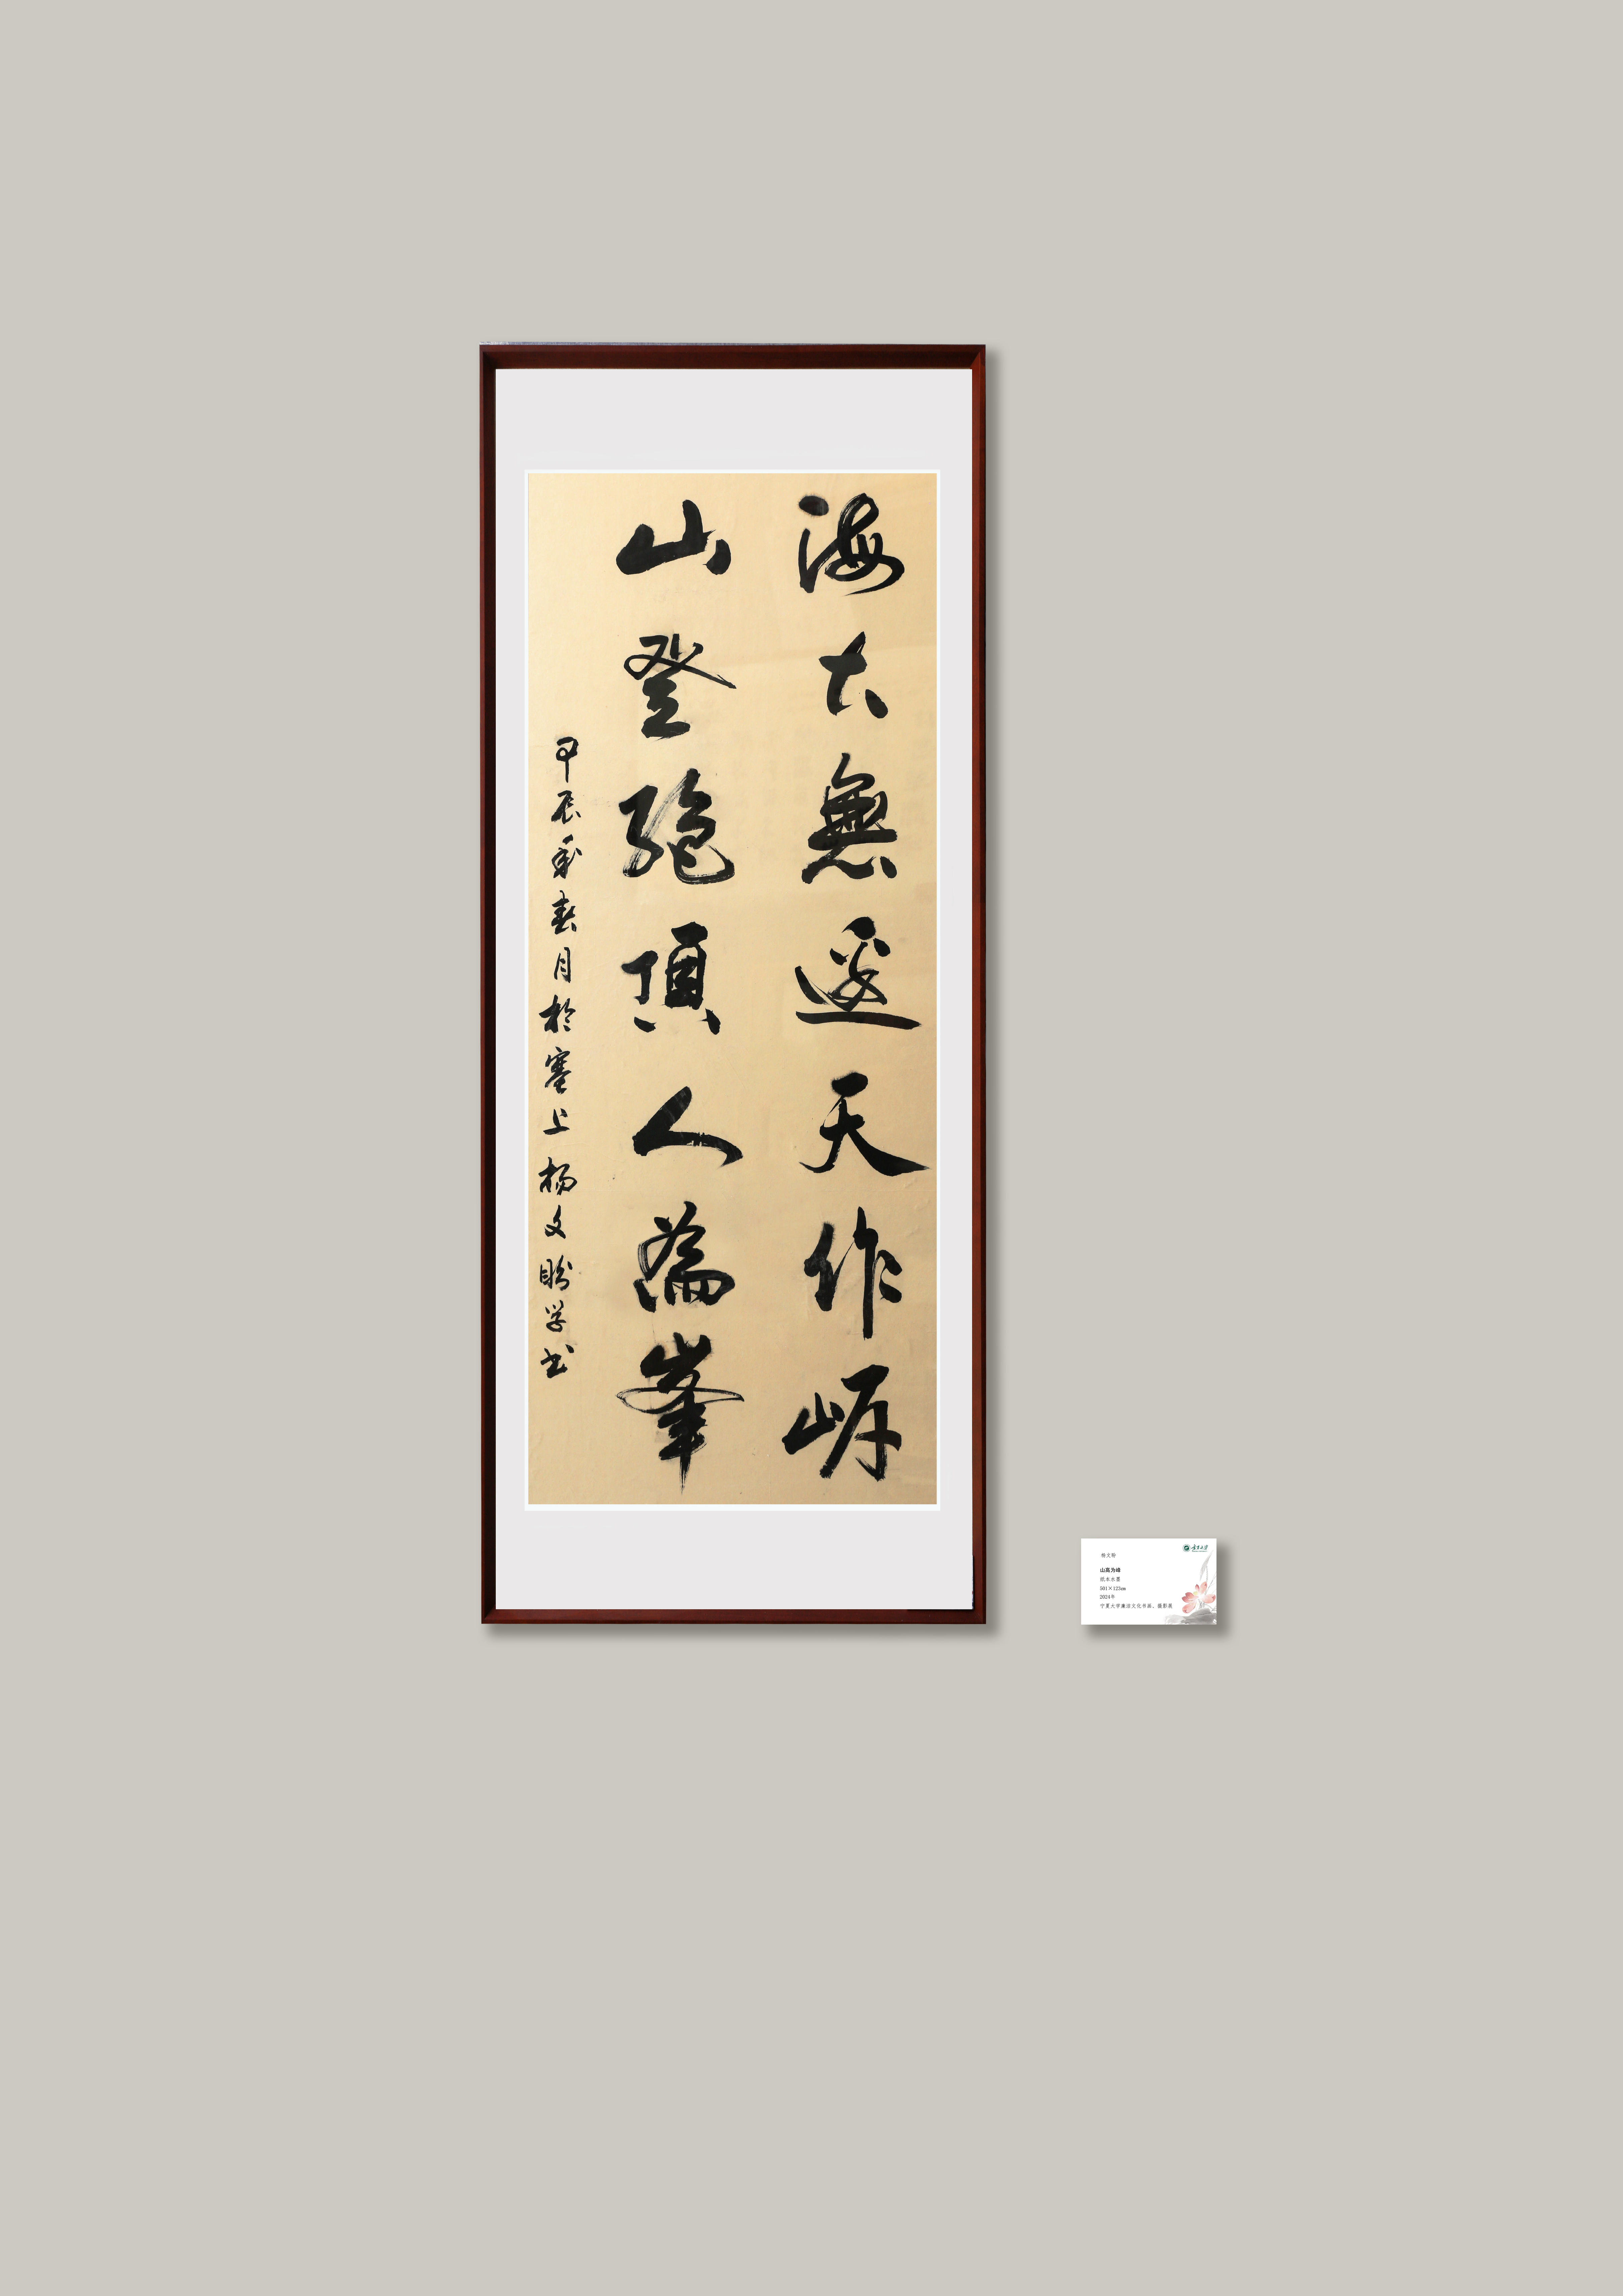 海大無邊天作岸
山登绝頂人為峯
甲辰年春月於塞上杨文盼学书
宁夏大学
杨文盼
山高为峰
纸本水墨
501×122cm
2024年
宁夏大学廉洁文化书画、摄影展